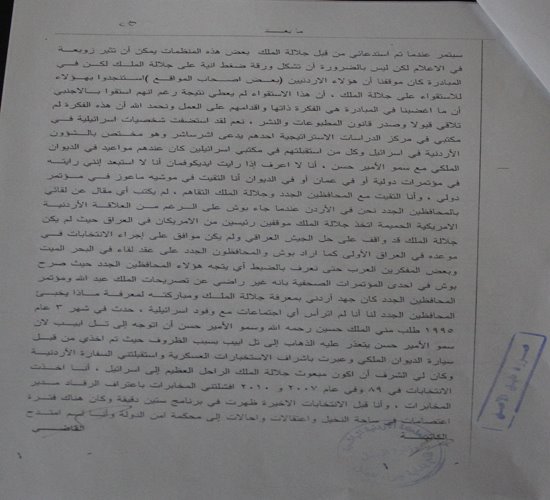 ما بعد
سبتمر عندما تم استدعائي من قبل جلالة الملك بعض هذه المنظمات يمكن أن تثير زوبعة
في الاعلام لكن ليس بالضرورة أن تشكل ورقة ضغط انية على جلالة الملك لكن في
المبادرة كان موقفنا أن هؤلاء الاردنيين (بعض اصحاب المواقع) استنجدوا بهؤلاء
للاستقواء على جلالة الملك ، أن هذا الاستقواء لم يعطي نتيجة رغم انهم استقوا بالاجنبي
أن ما اغضبنا في المبادرة هي الفكرة ذاتها واقدامهم على العمل ونحمد الله أن هذه الفكرة لم
تلاقي قبولا وصدر قانون المطبوعات والنشر ، نعم لقد استضفت شخصيات اسرائيلية في
مكتبي في مركز الدراسات الاستراتيجية احدهم يدعى اشرساشر وهو مختص بالشؤون
الأردنية في اسرائيل وكل من استقبلتهم في مكتبي اسرائيلين كان عندهم مواعيد في الديوان
الملكي مع سمو الأمير حسن ، أنا لا اعرف إذا رايت ايديكوفمان أنا لا استبعد إنني رايته
في مؤتمرات دولية أو في عمان أو في الديوان أنا التقيت في موشيه ماعوز في مؤتمر
دولي ، وأنا التقيت مع المحافظين الجدد وجلالة الملك التقاهم ، لم يكتب أي مقال عن لقائي
بالمحافظين الجدد نحن في الأردن عندما جاء بوش على الرغم من العلاقة الأردنية
الامريكية الحميمة اتخذ جلالة الملك موقفين رئيسين من الامريكان في العراق حيث لم يكن
جلالة الملك قد وافق على حل الجيش العراقي ولم يكن موافق على إجراء الانتخابات في
موعده في العراق الأولى كما اراد بوش والمحافظون الجدد على عقد لقاء في البحر الميت
وبعض المفكرين العرب حتى نعرف بالضبط أي يتجه هؤلاء المحافظين الجدد حيث صرح
بوش في احدى المؤتمرات الصحفية بانه غير راضي عن تصريحات الملك عبد الله ومؤتمر
المحافظين الجدد كان جهد أردني بمعرفة جلالة الملك ومباركته لمعرفة ماذا يخبئ
المحافظين الجدد لنا أنا لم اتراس أي اجتماعات مع وفود اسرائيلية ، حدث في شهر ٣ عام
١٩٩٥ طلب مني الملك حسين رحمه الله وسمو الأمير حسن أن اتوجه إلى تل ابيب لان
سمو الأمير حسن يتعذر عليه الذهاب إلى تل ابيب بسبب الظروف حيث تم اخذي من قبل
سيارة الديوان الملكي وعبرت باشراف الاستخبارات العسكرية واستقبلتني السفارة الأردنية
وكان لي الشرف أن اكون مبعوث جلالة الملك الراحل العظيم إلى اسرائيل ، أنا اخذت
الانتخابات في ٨٩ وفي عام ٢٠٠٧ و ٢٠١٠ افشلتني المخابرات باعتراف الرقاد مدير
المخابرات ، وأنا قبل الانتخابات الاخيرة ظهرت في برنامج ستين دقيقة وكان هناك فترة
اعتصامات في ساحة النخيل واعتقالات واحالات إلى محكمة امن الدولة وأنا لم امتدح
الكاتب القاضي